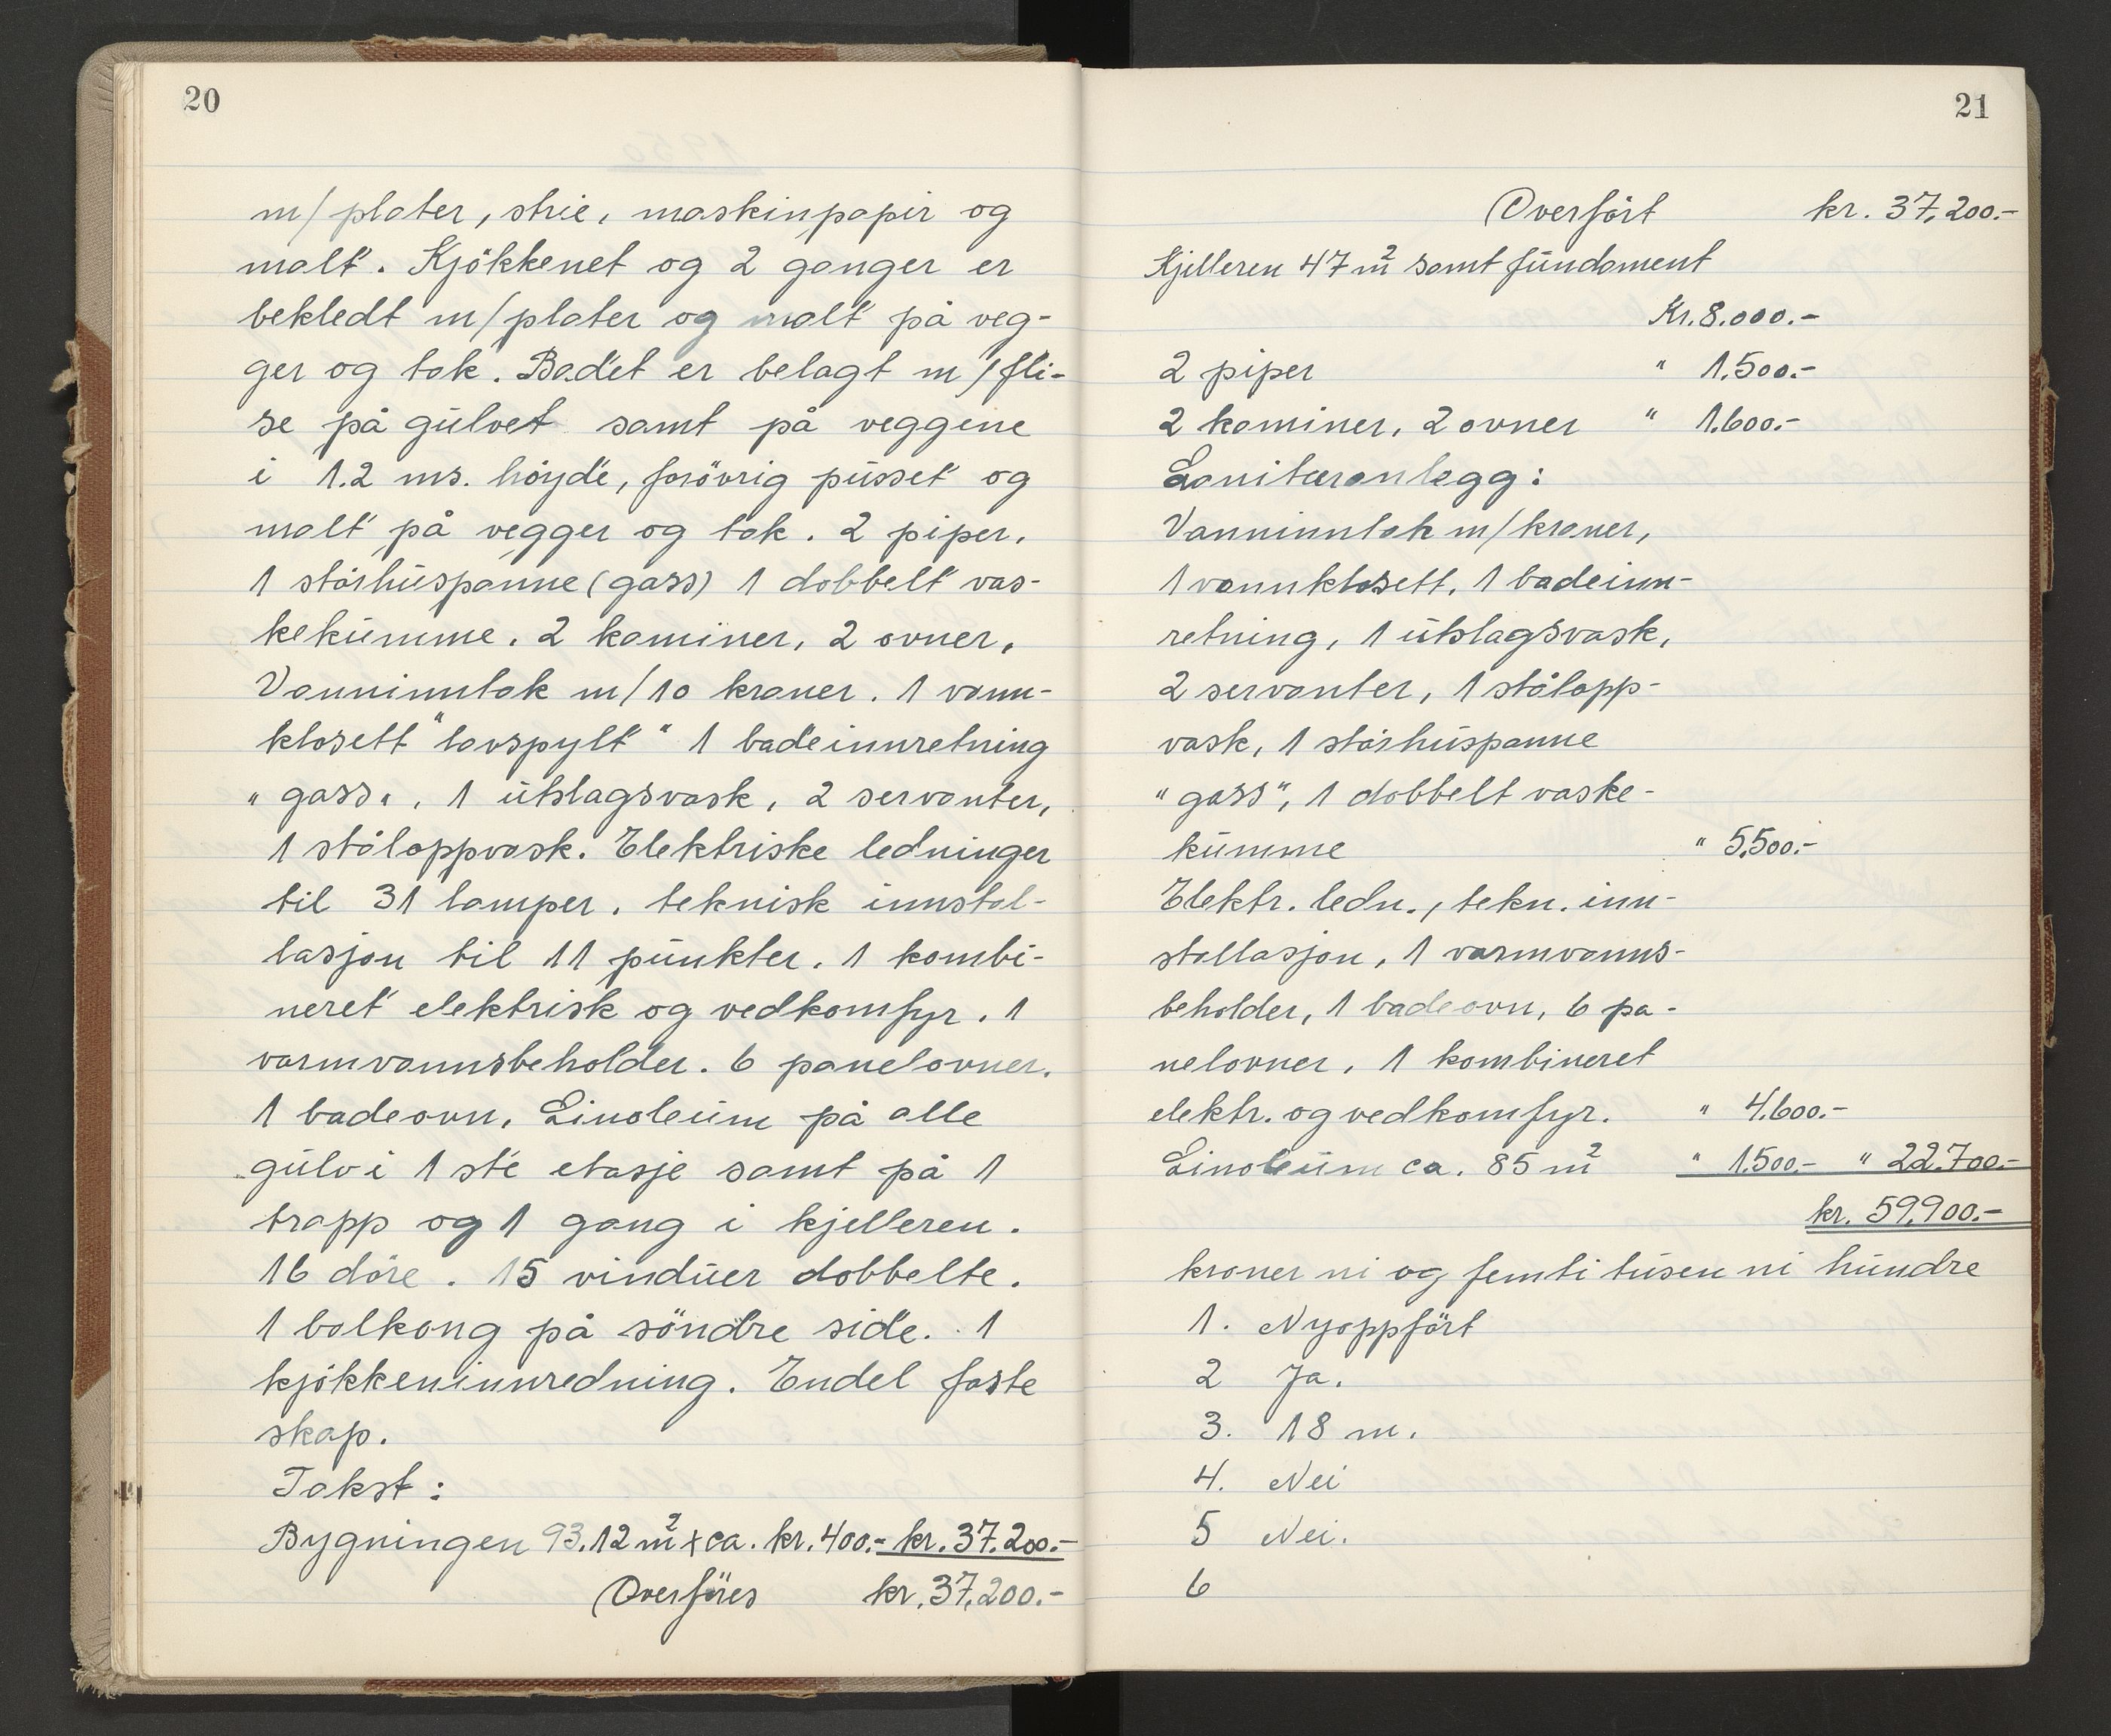 20
m/plater, strie, maskinpapir og
malt. Kjökkenet og 2 ganger er
bekledt m/plater og malt på veg-
ger og tak. Badet er belagt m/fli-
se på gulvet samt på veggene
i 1.2 ms. höyde, forövrig pusset og
malt på vegger og tak. 2 piper,
1 störhuspanne (gass) 1 dobbelt vas-
kekumme. 2 kaminer, 2 ovner,
Vanninntak m/10 kraner. 1 vann-
klosett "lavspylt" 1 badeinnretning
"gass", 1 utslagsvask, 2 servanter,
1 ståloppvask. Elektriske ledninger
til 31 lamper, teknisk innstal-
lasjon til 11 punkter. 1 kombi-
neret elektrisk og vedkomfyr. 1
varmvannsbeholder. 6 panelovner.
1 badeovn, Linoleum på alle
gulv i 1 ste etasje samt på 1
trapp og 1 gang i kjelleren.
16 döre. 15 vinduer dobbelte.
1 balkong på söndre side. 1
kjökkeninnredning. Endel faste
skap.
Takst:
Bygningen 93.12 m² x ca. kr. 400.- kr. 37.200.-
Overföres kr. 37,200.-
21
Overfört kr. 37,200.-
Kjelleren 47 m² samt fundament
Kr. 8.000.-
2 piper " 1.500.-
2 kaminer, 2 ovner " 1.600.-
Sanitæranlegg:
Vanninntak m/kraner,
1 vannklosett, 1 badeinn-
retning, 1 utslagsvask,
2 servanter, 1 stålopp-
vask, 1 störhuspanne
"gass", 1 dobbelt vaske-
kumme " 5.500.-
Elektr. ledn., tekn. inn-
stallasjon, 1 varmvanns-
beholder, 1 badeovn, 6 pa-
nelovner, 1 kombineret
elektr. og vedkomfyr. " 4.600.-
Linoleum ca. 85 m² " 1.500.- " 22.700.-
kr. 59.900.-
kroner ni og femti tusen ni hundre
1. Nyoppfört
2 Ja.
3. 18 m.
4. Nei
5 Nei.
6